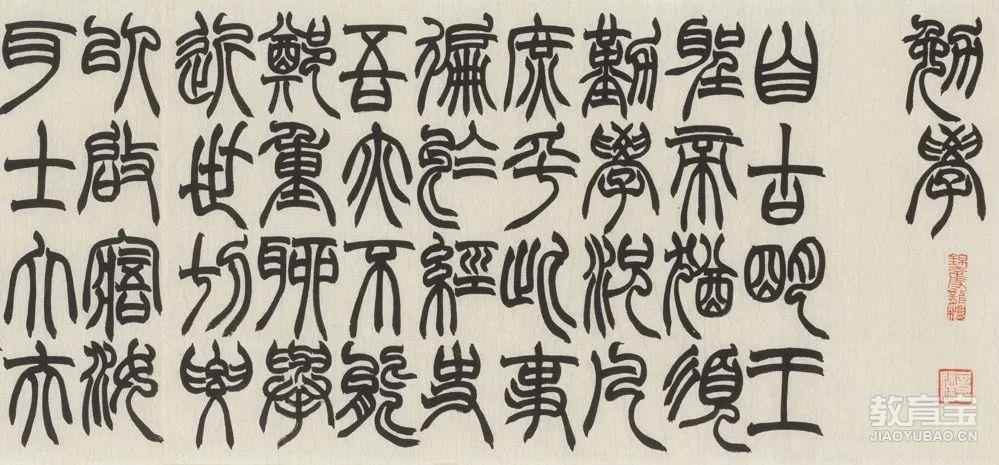 勉學
自古明王
聖帝猶須
勤學況凡
庶乎此事
徧於經史
吾亦不能
鄭重聊舉
近世切要
以啟寤汝
耳士大夫
教育宝
JIAOYUBAO.CN